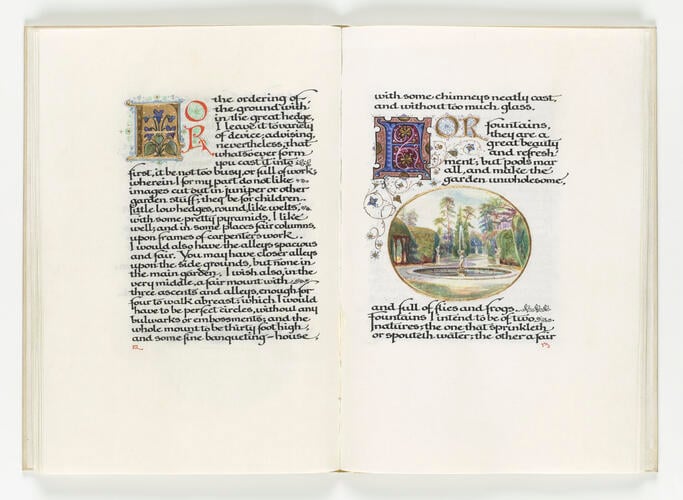 FOR the ordering of
the ground with-
in the great hedge,
I leave it to variety
of device; advising,
nevertheless, that
whatsoever form
you cast it into
first, it be not too busy, or full of work;
wherein I for my part do not like
images cut out in juniper or other
garden stuff; they be for children.
Little low hedges, round, like welts,
with some pretty pyramids, I like
well; and in some places fair columns,
upon frames of carpenters work.
I would also have the alleys spacious
and fair. You may have closer alleys
upon the side grounds, but none in
the main garden. I wish also, in the
very middle, a fair mount with
three ascents and alleys, enough for
four to walk abreast; which I would
have to be perfect circles, without any
bulwarks or embossments; and the
whole mount to be thirty foot high,
and some fine banqueting-house,
12
with some chimneys neatly cast,
and without too much glass.
FOR fountains,
they are a
great beauty
and refresh
ment; but pools mar
all, and make the
garden unwholesome,
and full of flies and frogs.
Fountains I intend to be of two
natures; the one that sprinkleth
or spouteth water; the other a fair
13